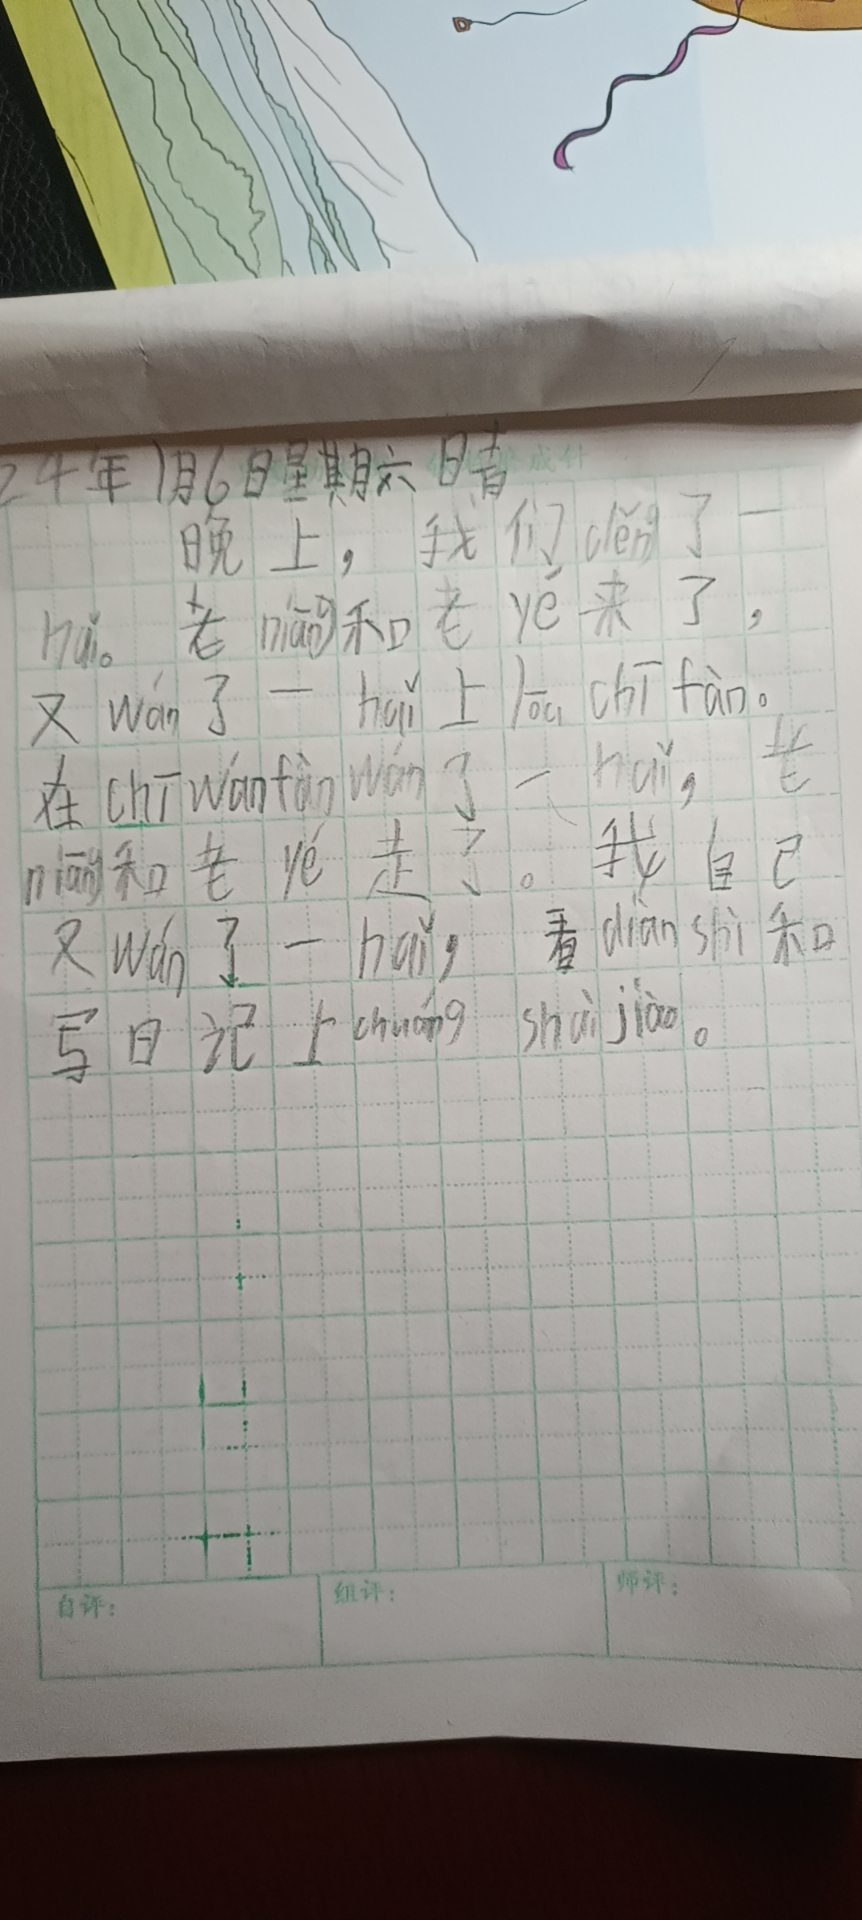 24年1月6日星期六 晴
晚上，我们děng了一
hǎi。老niāng和老yé来了，
又wán了一haǐ上lōu chī fàn。
在chī wán fàn wán了一haǐ，老
niāng和老yé走了。我自己
又wán了一haǐ，看diàn shì和
写日记上chuáng shuì jiào。
自评：
组评：
师评：